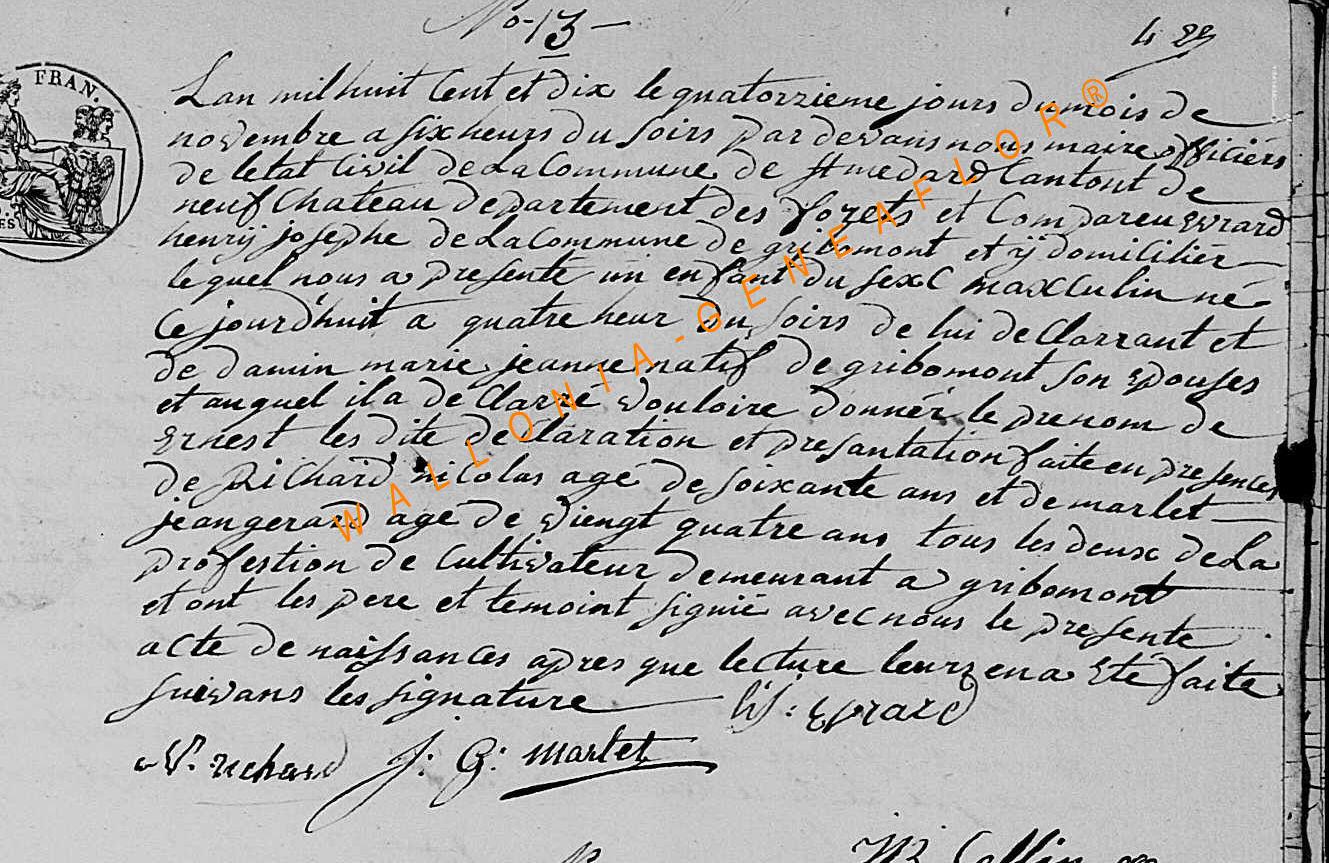 No. 13
428
FRAN.
Lan mil huit Cent et dix le quatorzieme jours du mois de
novembre a six heurs du soirs par devans nous maire officiers
de letat Civil de La Commune de St medard Cantont de
neufChateau departement des forets et Compareu Evrard
henrij josephe de La Commune de gribomont et ij domicilier
lequel nous a presenté un enfant du sexC maxculin né
Ce jourd'huit a quatre heur du soirs de lui deClarrant et
de damin marie jeanne natif de gribomont son epouses
et auquel il a deClarré vouloire donnér le prenom de
Ernest les dite deClaration et presantation faite en presences
de RiChard nicolas agé de soixante ans et de marlet
jean gerard age de viengt quatre ans tous les deux de La
profestion de Cultivateur demeurant a gribomont
et ont les pere et temoint signié avec nous le presente
acte de naissances apres que lecture leurs en a Eté faite
suivans les signature
hj: Evrard
N. richard J: G: marlet
Collin
WALLONIA-GENEAFLOR®